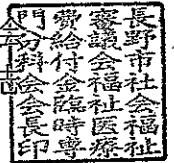 長野市社会福祉
審議会福祉医療
費給付金臨時専
門分科会会長印